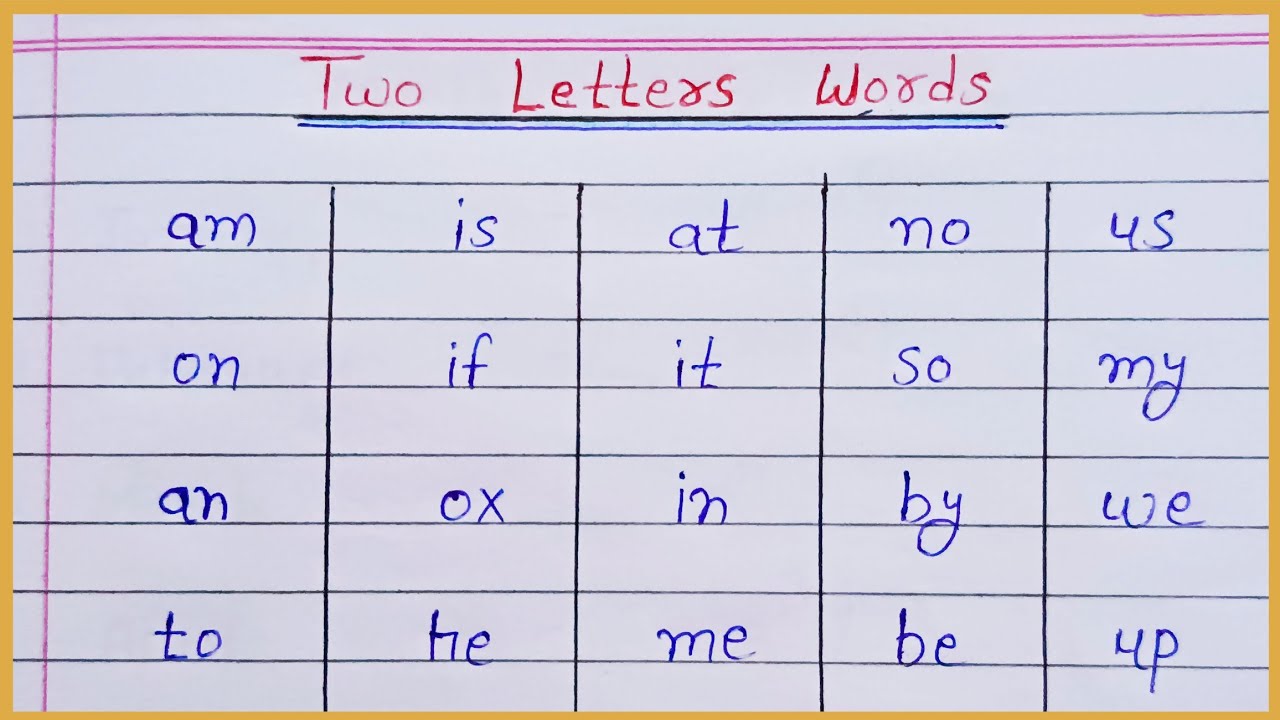 Two Letters Words
am is at no us
on if it so my
an ox in by we
to he me be up